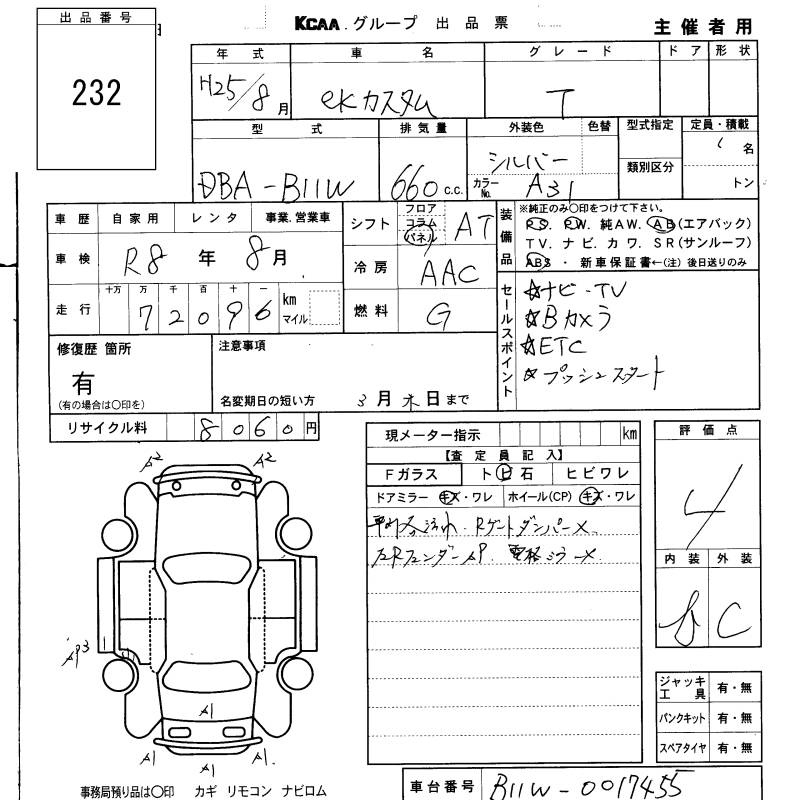 出品番号
232
KCAA グループ 出品票
主催者用
年式 車名 グレード ドア 形状
H25/8月 eKカスタム T
型式 排気量 外装色 色替 型式指定 定員・積載
DBA-B11W 660 c.c. シルバー 名
カラーNo. A31 類別区分 トン
車歴 自家用 レンタ 事業.営業車
車検 R8年8月
走行 十万 万 千 百 十 一 km マイル
72096
シフト フロア コラム パネル AT
冷房 AAC
燃料 G
装備品
※純正のみ〇印をつけて下さい。
P S. P W. 純AW. A B(エアバック)
TV. ナビ. カワ. SR(サンルーフ)
ABS ・ 新車保証書←(注) 後日送りのみ
セールスポイント
☆ナビ・TV
☆Bカメラ
☆ETC
☆プッシュスタート
修復歴 箇所
有
(有の場合は〇印を)
注意事項
名変期日の短い方 3月末日まで
リサイクル料 8060円
現メーター指示 km
【査定員記入】
Fガラス ト ビ 石 ヒビワレ
ドアミラー キズ・ワレ ホイール(CP) キズ・ワレ
Rゲートダンパー×
左Rフェンダー 電格ミラー×
評価点
4
内装 外装
C
A2 A2
A1
A1 A1 A1
ジャッキ工具 有・無
パンクキット 有・無
スペアタイヤ 有・無
事務局預り品は〇印 カギ リモコン ナビロム
車台番号 B11W-0017455